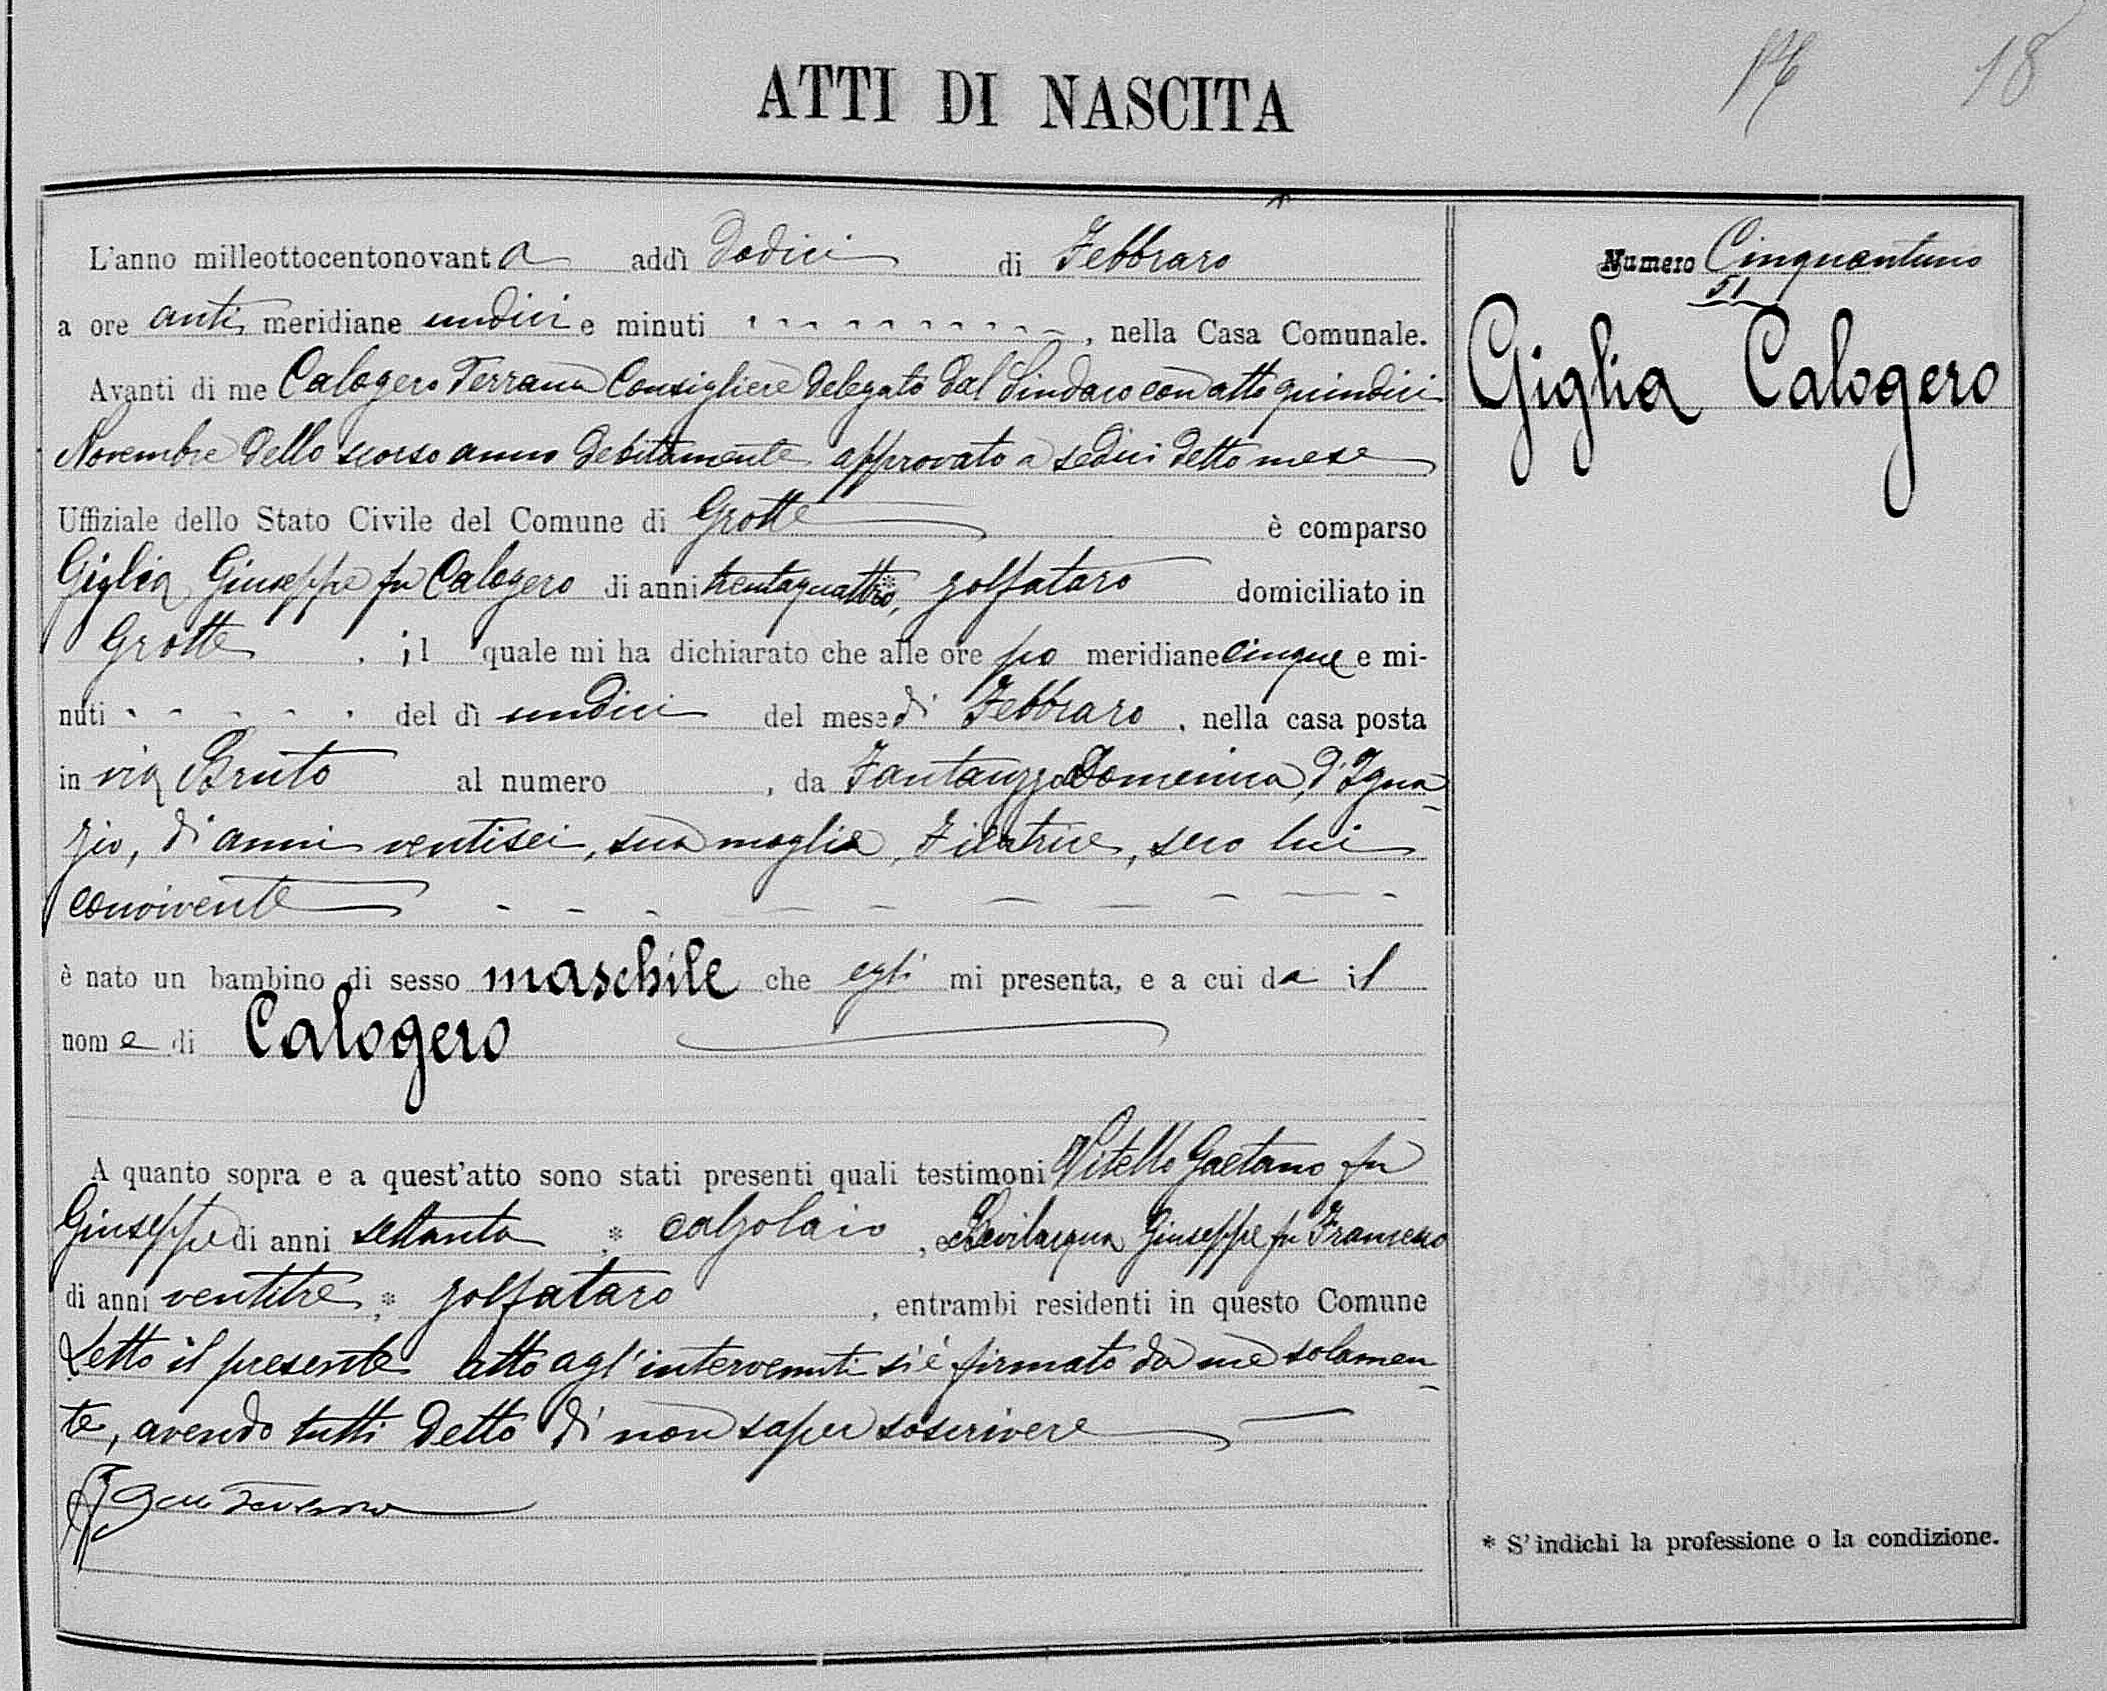 18
ATTI DI NASCITA
L'anno milleottocentonovanta addì dodici di Febbraro
a ore anti meridiane undici e minuti , nella Casa Comunale.
Avanti di me Calogero Terrana Consigliere Delegato dal Sindaco con atto quindici
Novembre dello scorso anno debitamente approvato a sedici detto mese
Uffiziale dello Stato Civile del Comune di Grotte è comparso
Giglia Giuseppe fu Calogero di anni trentaquattro*, zolfataro domiciliato in
Grotte ; il quale mi ha dichiarato che alle ore po meridiane cinque e mi-
nuti del dì undici del mese di Febbraro, nella casa posta
in via Bruto al numero , da Fantauzzo Domenica, d'Igna-
zio, di anni ventisei, sua moglie, Filatrice, seco lui
convivente
è nato un bambino di sesso maschile che egli mi presenta, e a cui da il
nome di Calogero
A quanto sopra e a quest'atto sono stati presenti quali testimoni Vitello Gaetano fu
Giuseppe di anni settanta, * calzolaio, e Bevilacqua Giuseppe fu Francesco
di anni ventitre, * zolfataro, entrambi residenti in questo Comune
Letto il presente atto agl'intervenuti si è firmato da me solamen-
te, avendo tutti detto di non saper soscrivere
Numero Cinquantuno
51
Giglia Calogero
* S'indichi la professione o la condizione.